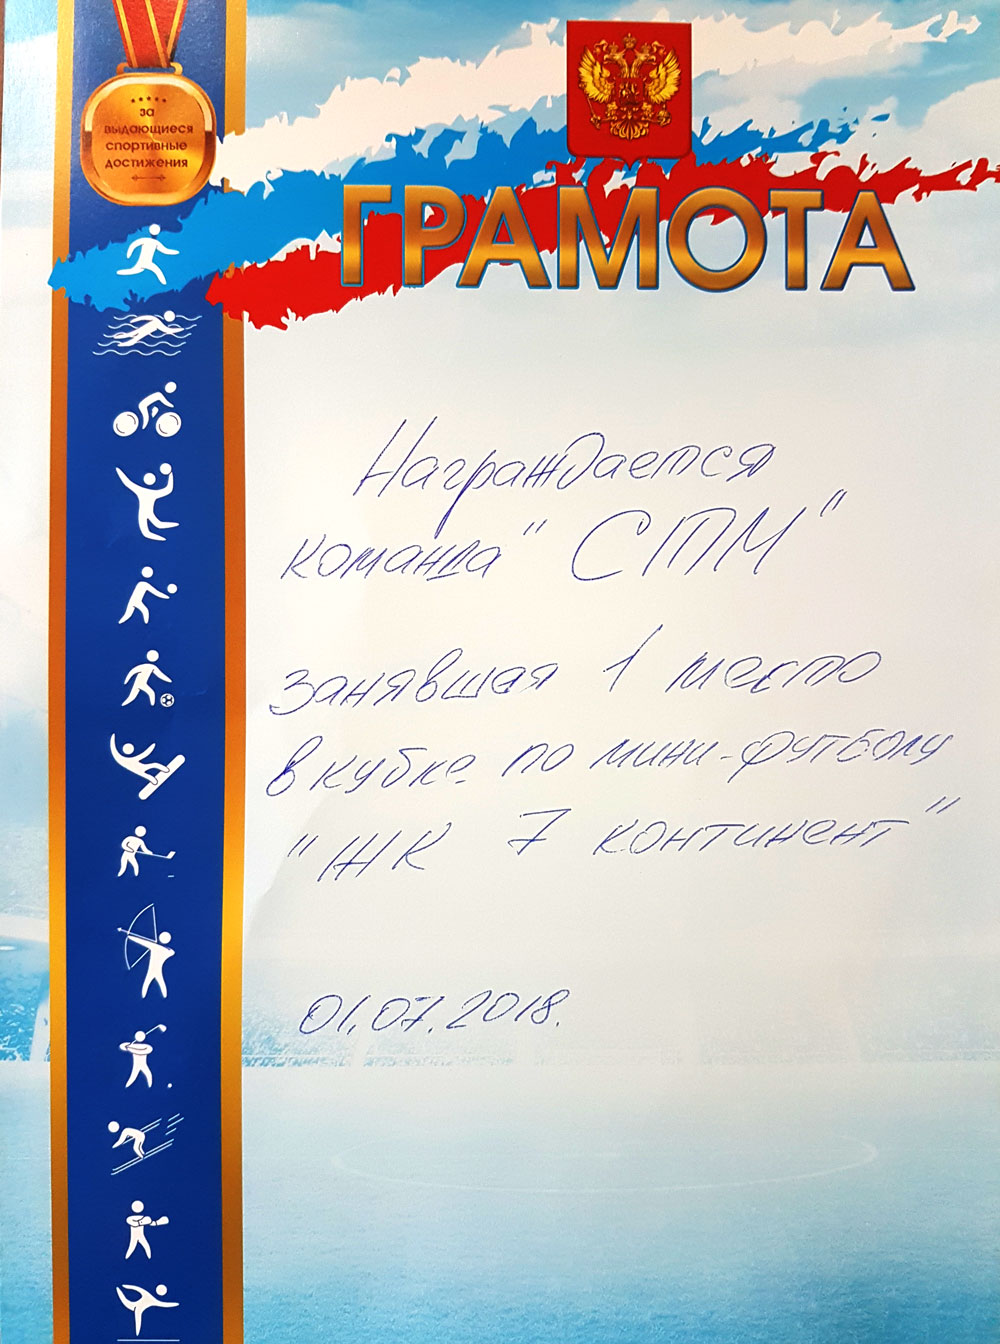 за
выдающиеся
спортивные
достижения
ГРАМОТА
Награждается
команда "СПМ"
занявшая 1 место
в кубке по мини-футболу
"ЖК 7 континент"
01.07.2018.